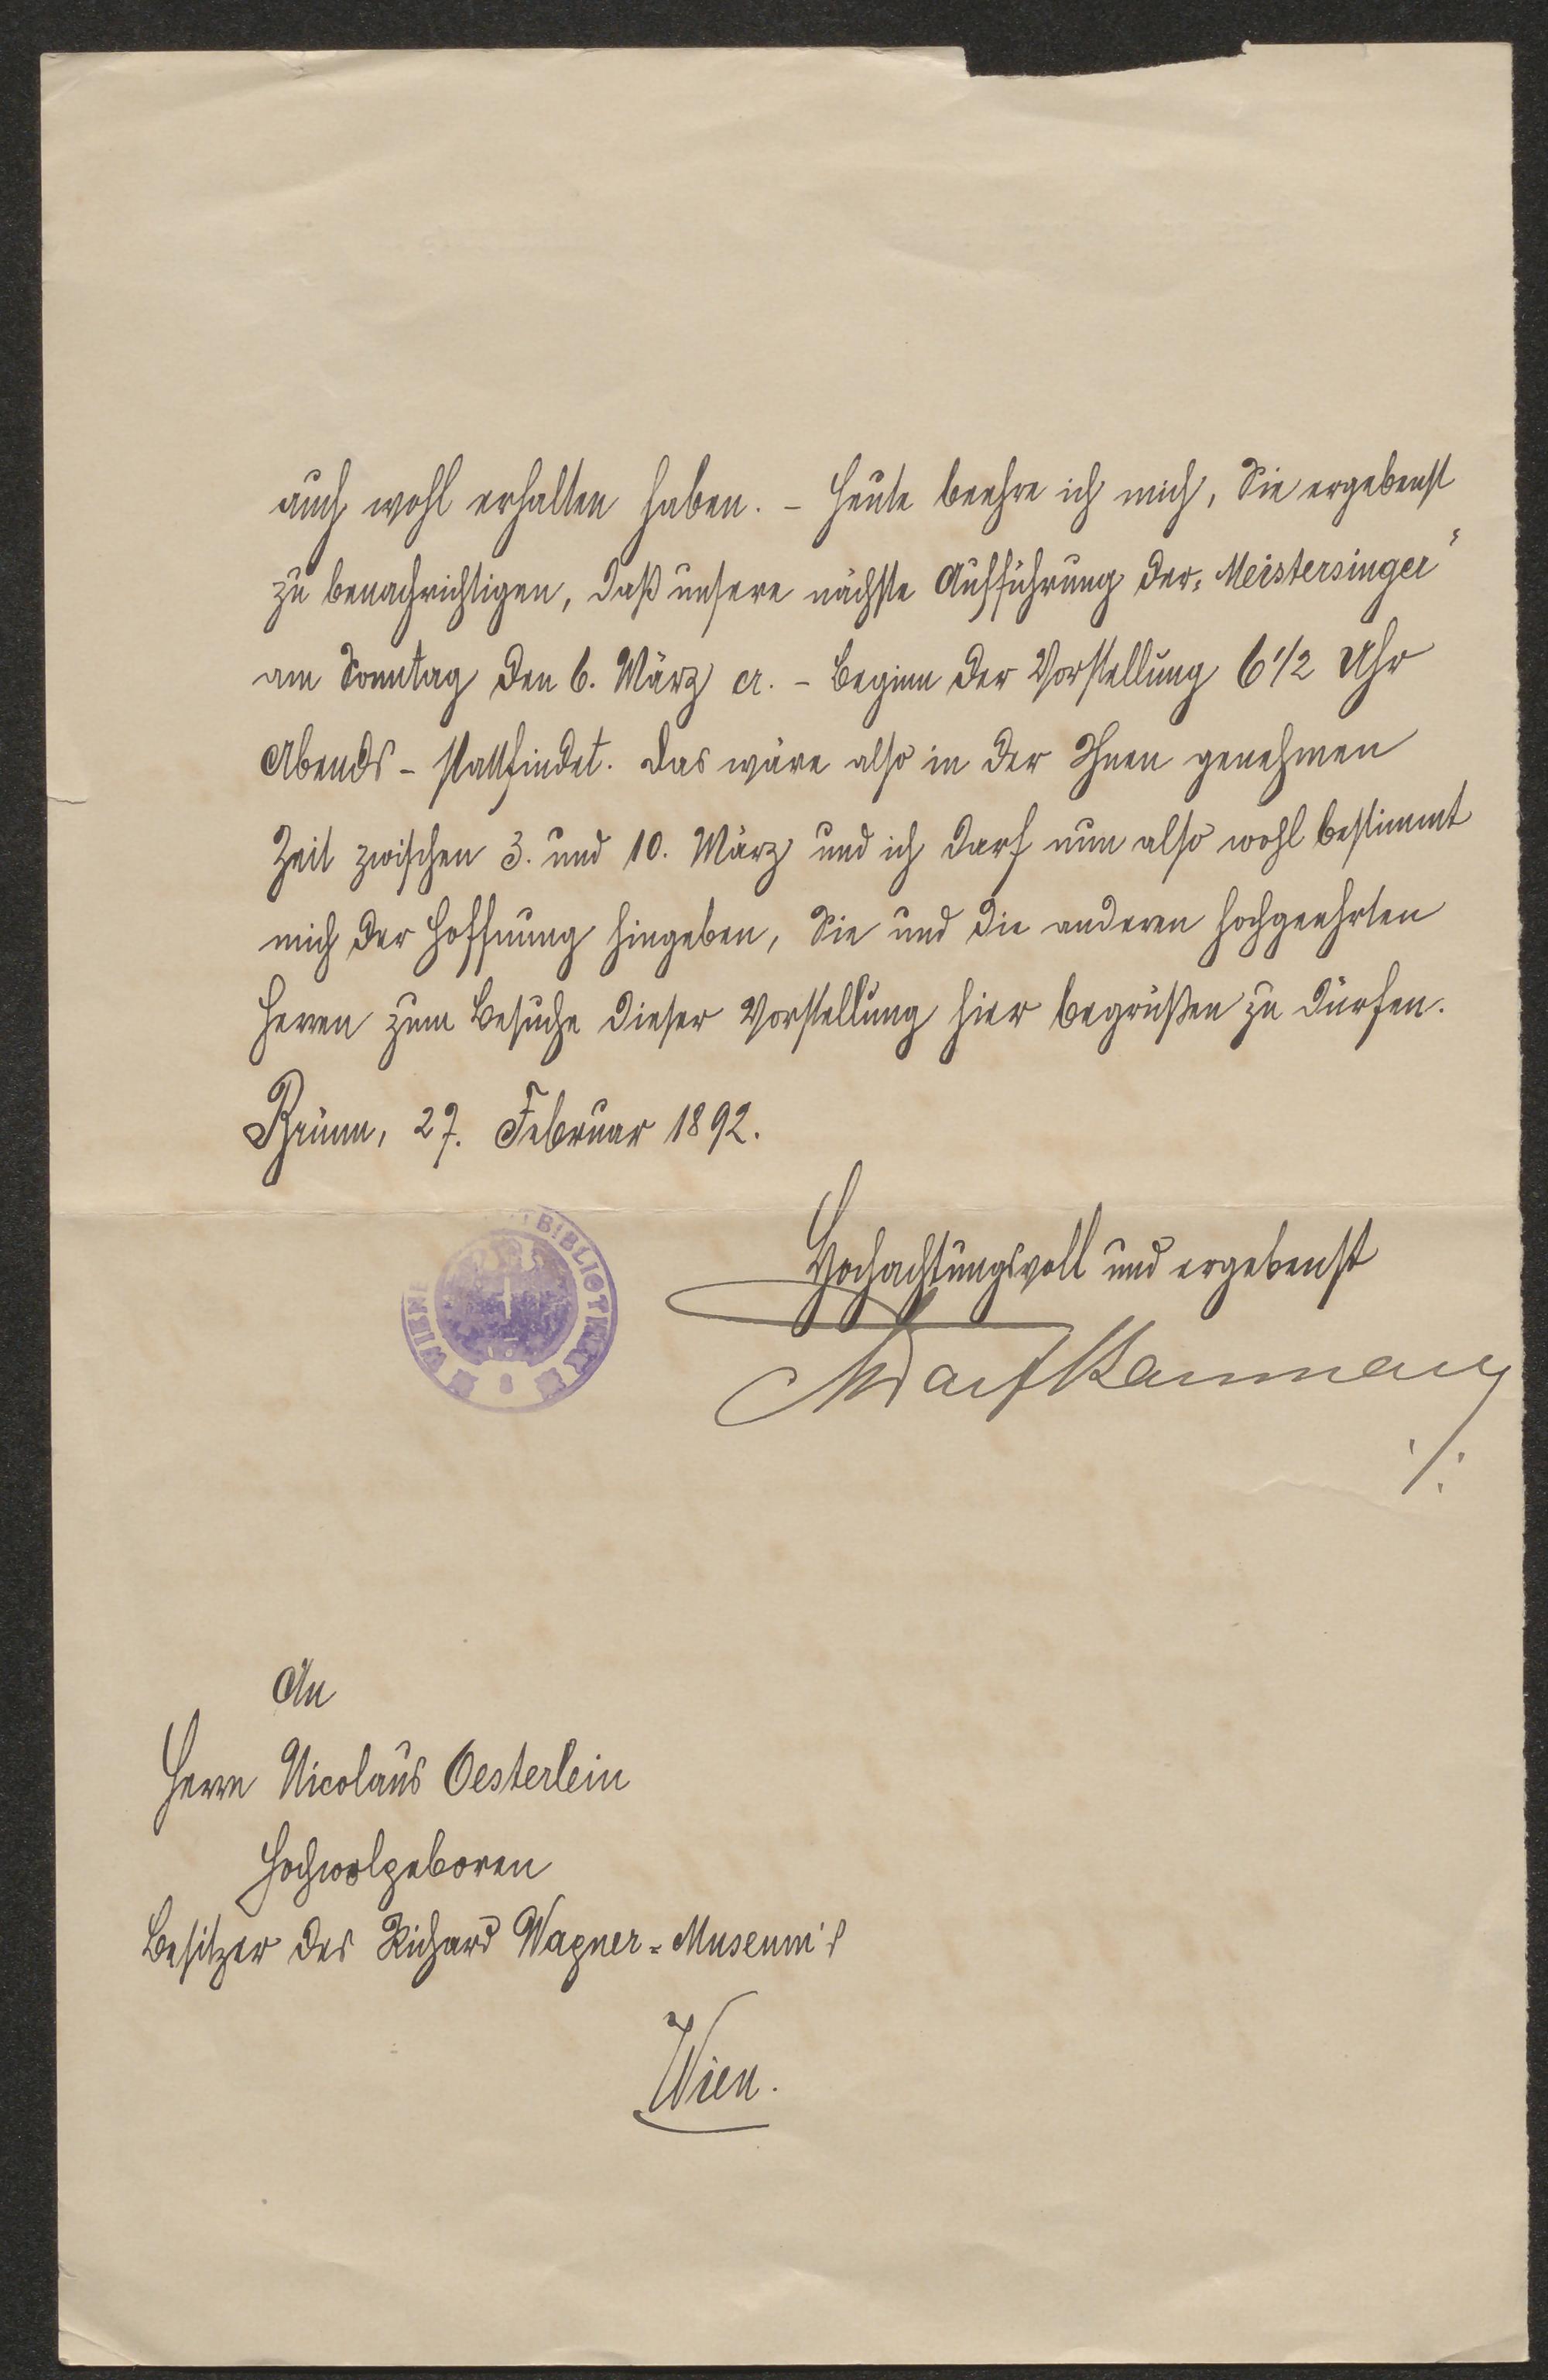 auch wohl erhalten haben. – Heute beehre ich mich, Sie ergebenst
zu benachrichtigen, daß unsere nächste Aufführung der „Meistersinger“
am Sonntag den 6. März cr. – Beginn der Vorstellung 6 1/2 Uhr
Abends – stattfindet. Das wäre also in der Ihnen genehmen
Zeit zwischen 3. und 10. März und ich darf nun also wohl bestimmt
mich der Hoffnung hingeben, Sie und die anderen hochgeehrten
Herren zum Besuche dieser Vorstellung hier begrüßen zu dürfen.
Brünn, 27. Februar 1892.
Hochachtungsvoll und ergebenst
./.
BIBLIOTHEK
WIEN
An
Herrn Nicolaus Oesterlein
Hochwolgeboren
Besitzer des Richard Wagner-Museum's
Wien.